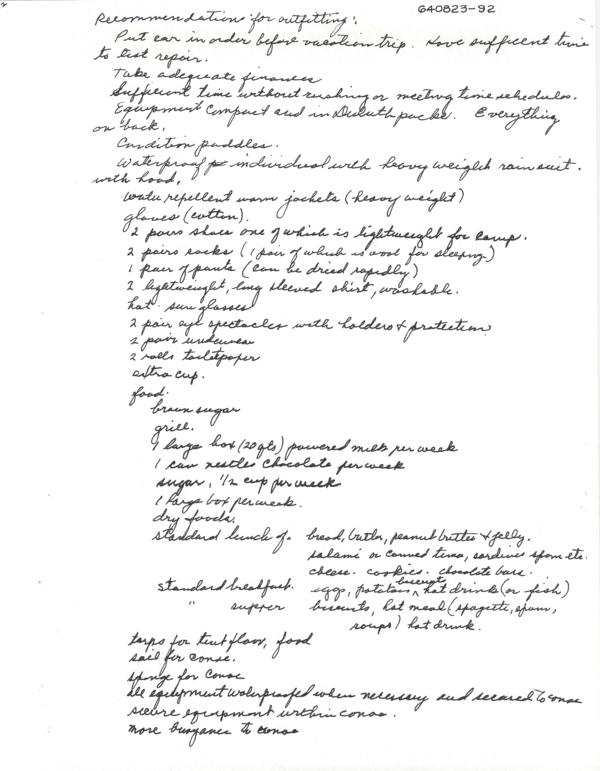 2
640823-92
Recommendations for outfitting:
Put car in order before vacation trip. Have sufficent time
to test repair.
Take adequate finances
Sufficient time without rushing or meeting time schedules.
Equipment compact and in Duluth packs. Everything
on back.
Condition paddles.
Waterproof individual with heavy weight rain suit.
with hood.
water repellent warm jackets (heavy weight)
gloves (cotton).
2 pairs shoes one of which is lightweight for camp.
2 pairs socks (1 pair of which is wool for sleeping)
1 pair of pants (can be dried rapidly)
2 lightweight, long sleeved shirt, washable.
hat. sun glasses
2 pair eye spectacles with holders + protection
2 pair underwear
2 rolls toiletpaper
extra cup.
food.
brown sugar
grill.
1 large box (20 qts) powered milk per week
1 can nestles chocolate per week
sugar, 1/2 cup per week
1 large box per week.
dry foods.
standard lunch of. bread, butter, peanut butter + jelly.
salami or canned tuna, sardines spam etc.
cheese. cookies. chocolate bars.
standard breakfast. eggs, potatoes, biscuits hot drink (or fish)
" supper biscuits, hot meal (spagetti, spam,
soups) hot drink.
tarps for tent floor, food
sail for canoe.
sponge for canoe
all equipment waterproofed when necessary and secured to canoe
secure equipment within canoe.
more buoyance to canoe